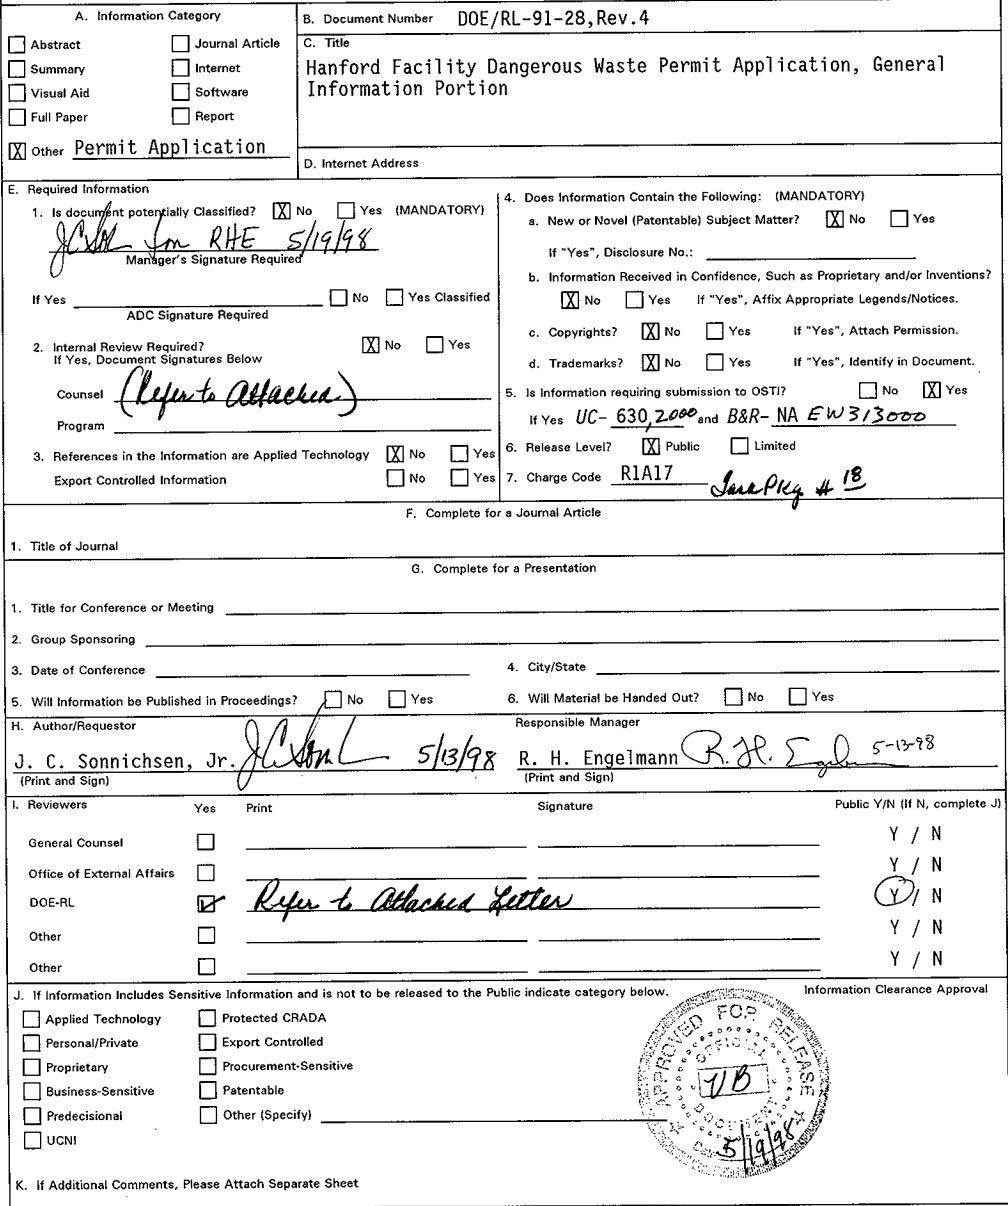 A. Information Category
Abstract Journal Article
Summary Internet
Visual Aid Software
Full Paper Report
X Other Permit Application
B. Document Number DOE/RL-91-28,Rev.4
C. Title
Hanford Facility Dangerous Waste Permit Application, General
Information Portion
D. Internet Address
E. Required Information
1. Is document potentially Classified? X No Yes (MANDATORY)
for RHE 5/19/98
Manager's Signature Required
If Yes No Yes Classified
ADC Signature Required
2. Internal Review Required? X No Yes
If Yes, Document Signatures Below
Counsel (Refer to Attached)
Program
3. References in the Information are Applied Technology X No Yes
Export Controlled Information No Yes
4. Does Information Contain the Following: (MANDATORY)
a. New or Novel (Patentable) Subject Matter? X No Yes
If "Yes", Disclosure No.:
b. Information Received in Confidence, Such as Proprietary and/or Inventions?
X No Yes If "Yes", Affix Appropriate Legends/Notices.
c. Copyrights? X No Yes If "Yes", Attach Permission.
d. Trademarks? X No Yes If "Yes", Identify in Document.
5. Is Information requiring submission to OSTI? No X Yes
If Yes UC- 630,2000 and B&R- NA EW313000
6. Release Level? X Public Limited
7. Charge Code R1A17 Pkg # 18
F. Complete for a Journal Article
1. Title of Journal
G. Complete for a Presentation
1. Title for Conference or Meeting
2. Group Sponsoring
3. Date of Conference 4. City/State
5. Will Information be Published in Proceedings? No Yes 6. Will Material be Handed Out? No Yes
H. Author/Requestor Responsible Manager
J. C. Sonnichsen, Jr. 5/13/98 R. H. Engelmann R. H. 5-13-98
(Print and Sign) (Print and Sign)
I. Reviewers Yes Print Signature Public Y/N (If N, complete J)
General Counsel Y / N
Office of External Affairs Y / N
DOE-RL Refer to Attached Letter Y / N
Other Y / N
Other Y / N
J. If Information Includes Sensitive Information and is not to be released to the Public indicate category below. Information Clearance Approval
Applied Technology Protected CRADA
Personal/Private Export Controlled
Proprietary Procurement-Sensitive
Business-Sensitive Patentable
Predecisional Other (Specify)
UCNI
APPROVED FOR RELEASE
OFFICIAL
VB
DOCUMENT
Date 5/19/98
K. If Additional Comments, Please Attach Separate Sheet